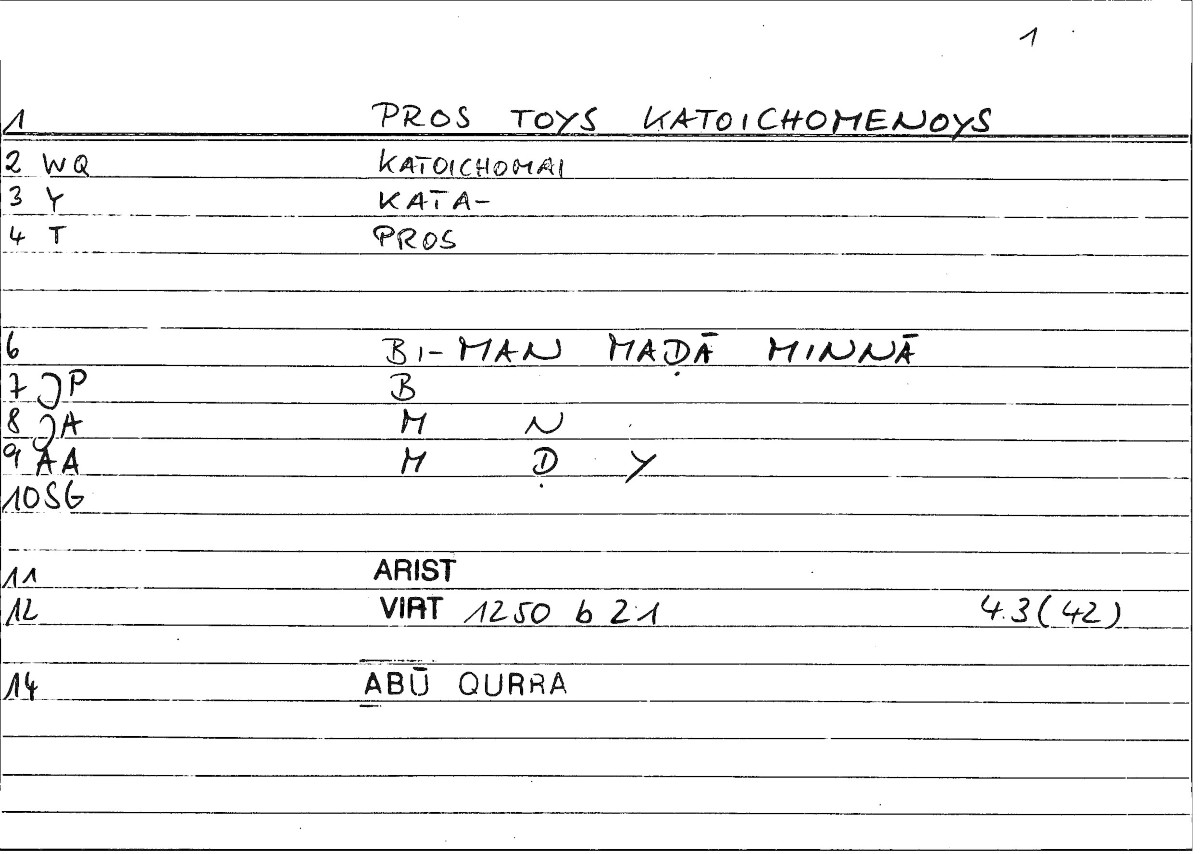 1
1 PROS TOYS KATOICHOMENOYS
2 WQ KATOICHOMAI
3 Y KATA-
4 T PROS
6 BI-MAN MAḌĀ MINNĀ
7 JP B
8 JA M N
9 AA M Ḍ Y
10 SG
11 ARIST
12 VIRT 1250 b 21 4.3(42)
14 ABŪ QURRA